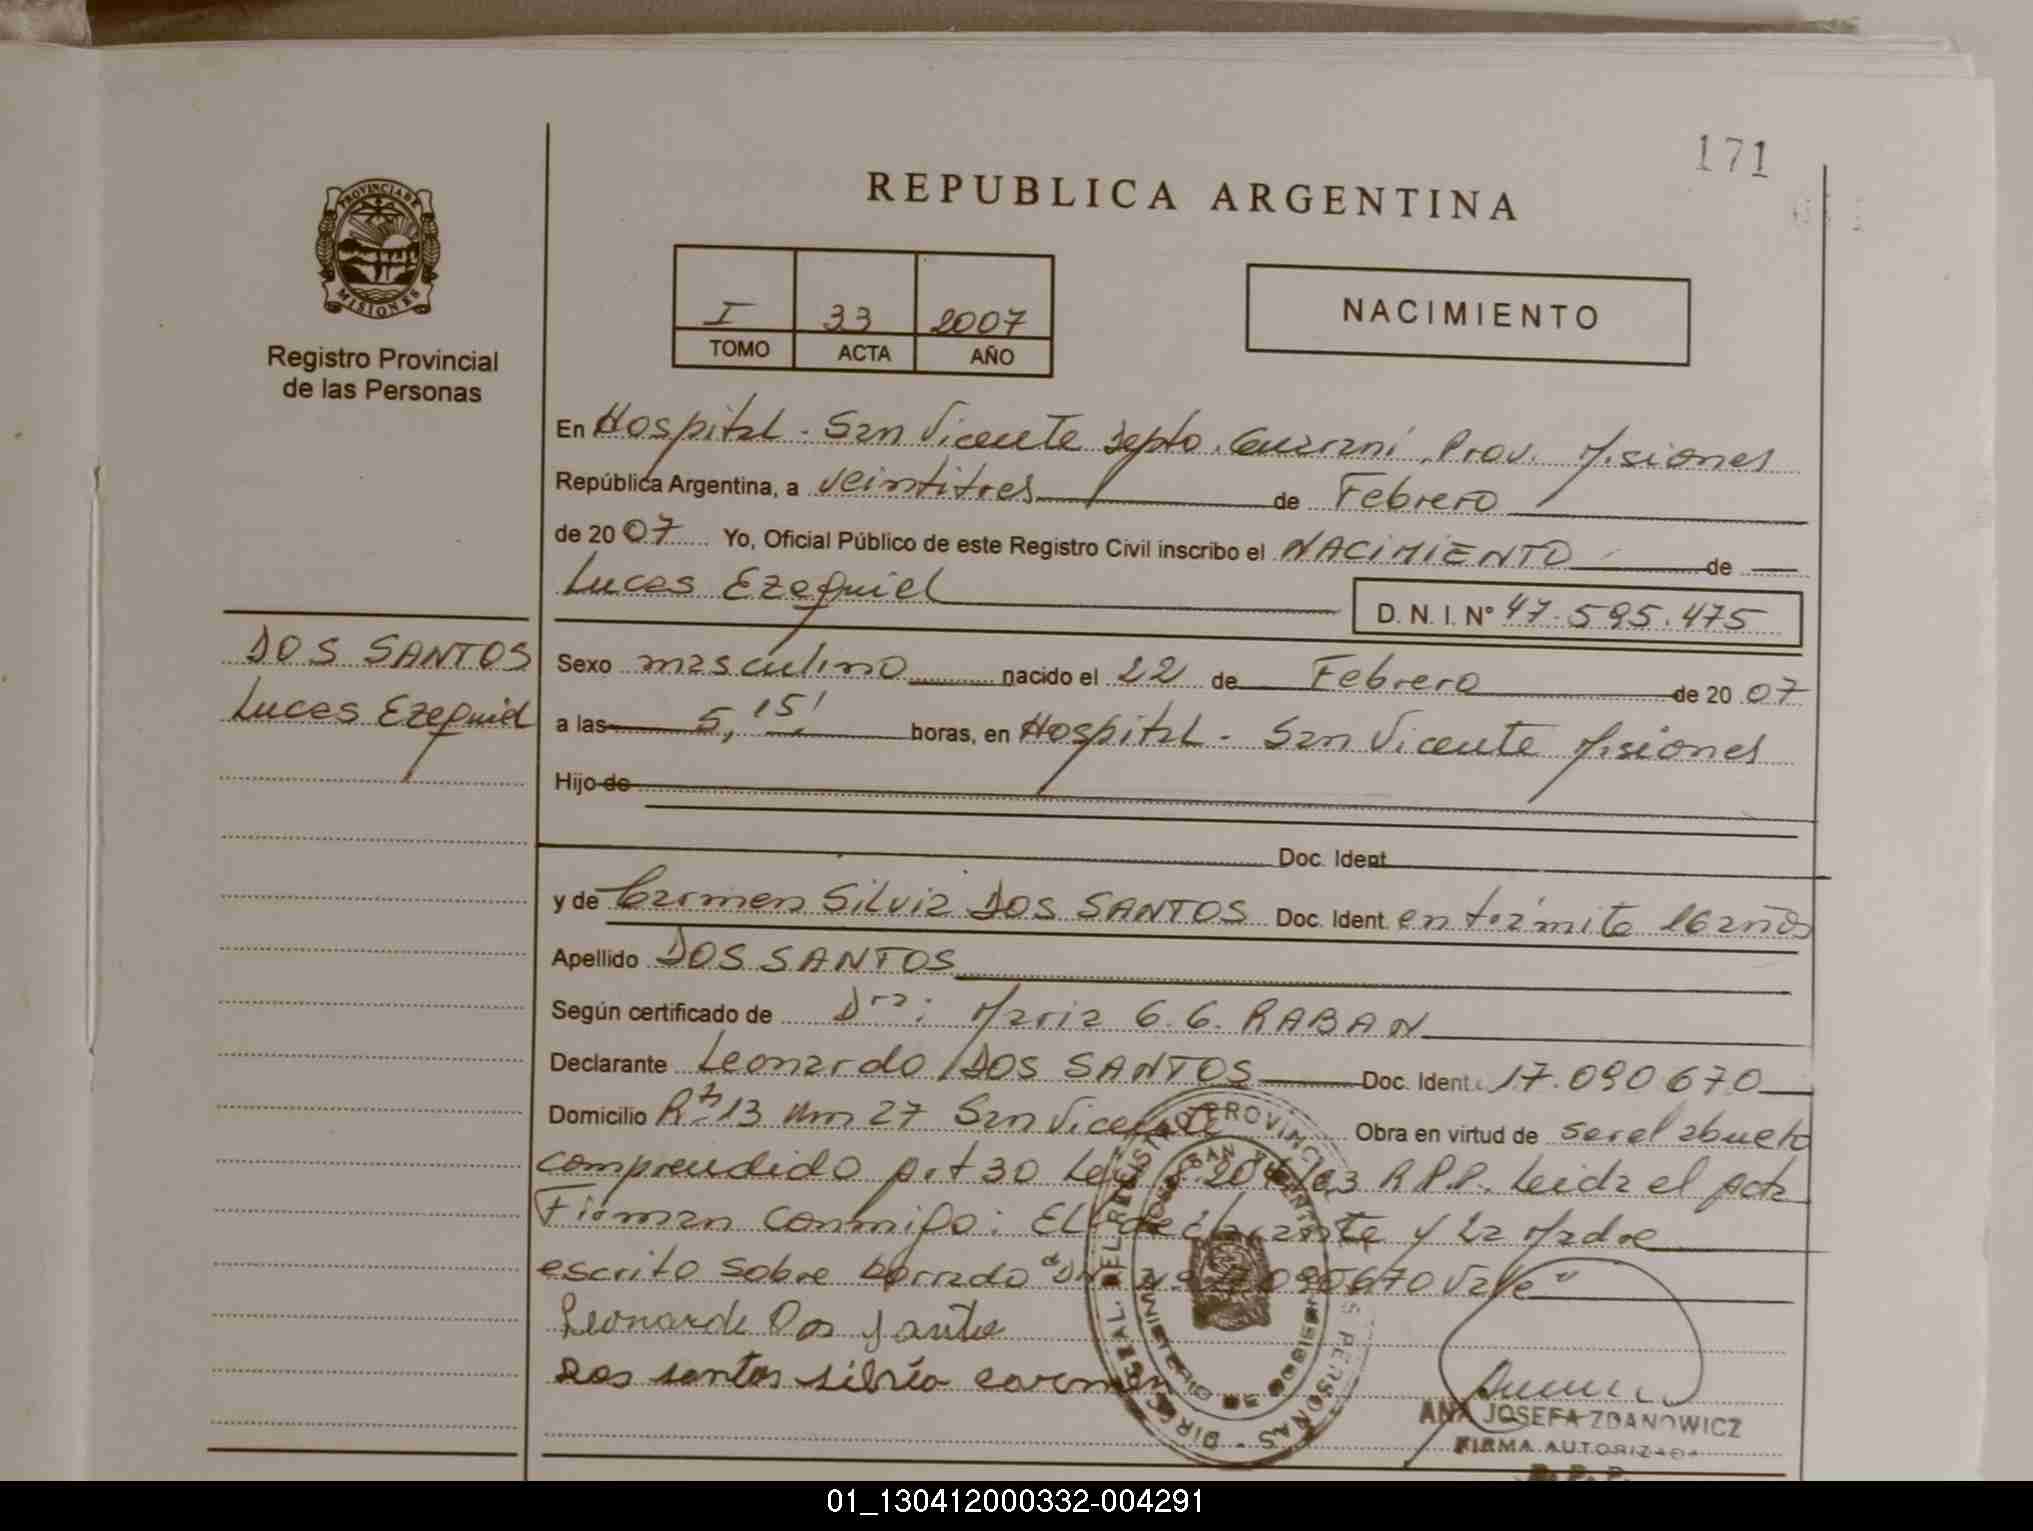 171
REPUBLICA ARGENTINA
PROVINCIA DE
MISIONES
Registro Provincial
de las Personas
I 33 2007
TOMO ACTA AÑO
NACIMIENTO
En Hospital - San Vicente Depto. Guaraní, Prov. Misiones
República Argentina, a veintitres de Febrero
de 2007 Yo, Oficial Público de este Registro Civil inscribo el NACIMIENTO de
Lucas Ezequiel
D. N. I. Nº 47.595.475
DOS SANTOS
Lucas Ezequiel
Sexo masculino nacido el 22 de Febrero de 2007
a las 5,15' horas, en Hospital - San Vicente Misiones
Hijo de
Doc. Ident.
y de Carmen Silvia DOS SANTOS Doc. Ident. en trámite 16 años
Apellido DOS SANTOS
Según certificado de Dra: Maria G. G. RABAN
Declarante Leonardo DOS SANTOS Doc. Ident.: 17.090670
Domicilio Rta 13 Km 27 San Vicente Obra en virtud de ser el abuelo
comprendido art 30 Ley R.P.P. Leida el acta
Firman conmigo: El declarante y La Madre
escrito sobre borrado "DNI Nº 17090670 Vale"
Leonardo Dos Santos
Dos santos silvia carmen
DIRC. GRAL. DEL REGISTRO PROVINCIAL DE LAS PERSONAS
SAN VICENTE
MISIONES
MINISTERIO DE GOBIERNO
ANA JOSEFA ZDANOWICZ
FIRMA AUTORIZADA
R. P. P.
01_130412000332-004291